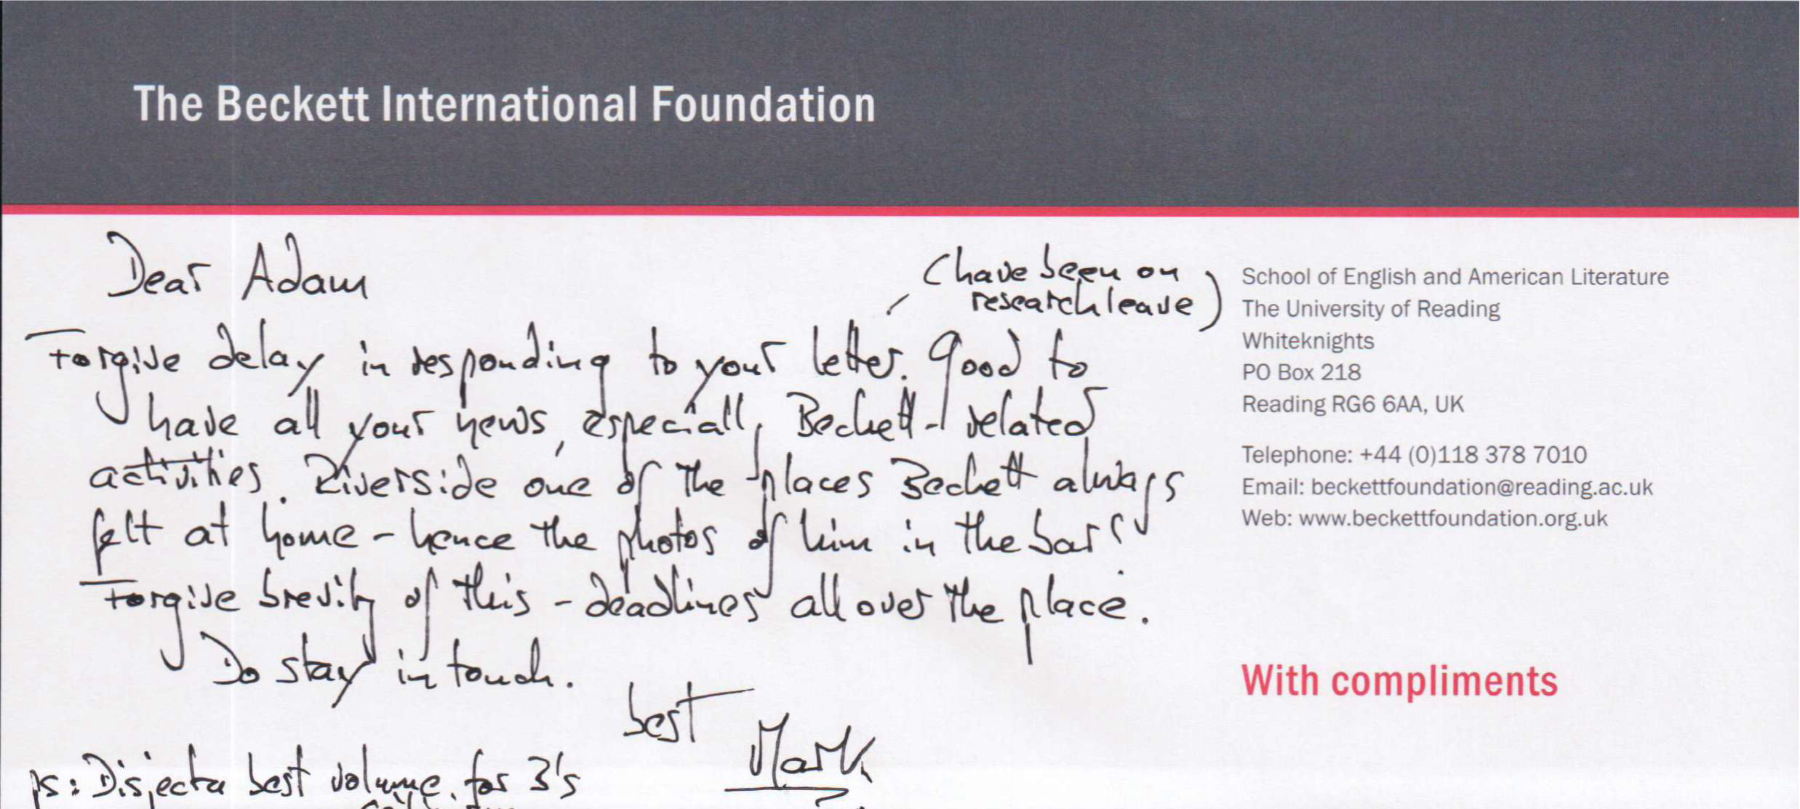 The Beckett International Foundation
Dear Adam
(have been on
research leave)
Forgive delay in responding to your letter. Good to
have all your news, especially Beckett-related
activities. Riverside one of the places Beckett always
felt at home – hence the photos of him in the bar!
Forgive brevity of this – deadlines all over the place.
Do stay in touch.
best
Mark
ps: Disjecta best volume for B's
School of English and American Literature
The University of Reading
Whiteknights
PO Box 218
Reading RG6 6AA, UK
Telephone: +44 (0)118 378 7010
Email: beckettfoundation@reading.ac.uk
Web: www.beckettfoundation.org.uk
With compliments